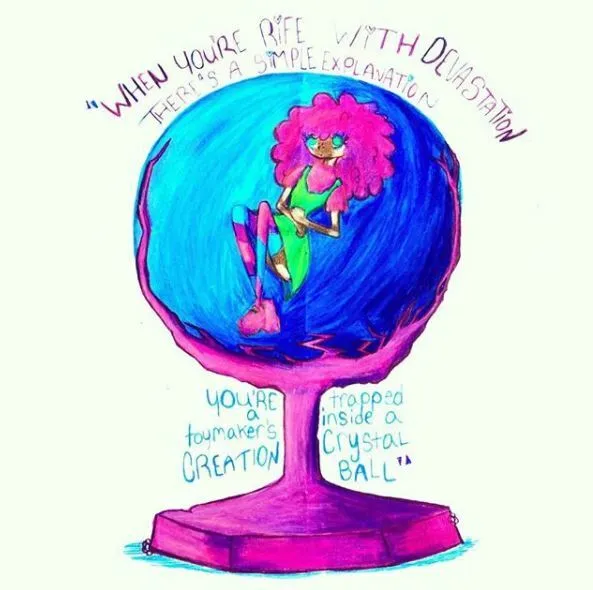 "WHEN YOU'RE RIFE WITH DEVASTATION
THERE'S A SIMPLE EXPLAVATION
YOU'RE
a
toymaker's
CREATION
trapped
inside a
Crystal
BALL"